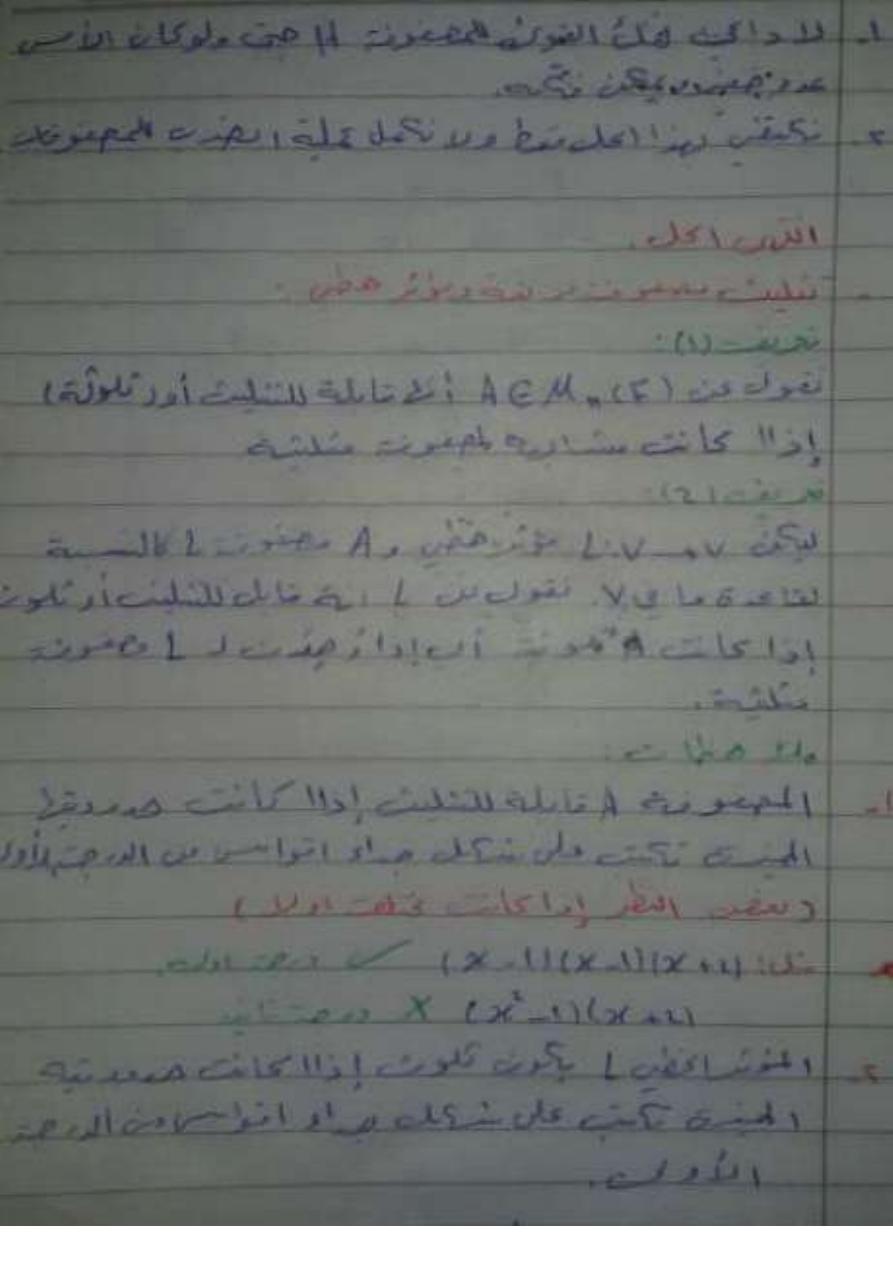 1- لا داعي لفك القوى للمصفوفة A حتى ولو كان الأس
عدد ولا يمكن فكه.
2- نكتفي بهذا الحل فقط ولا نكمل عملية الضرب للمصفوفات
انتهى الحل.
- تثليث مصفوفة مربعة ومؤثر خطي:
تعريف (1):
نقول عن A ∈ Mₙ(F) أنها قابلة للتثليث أو (تلوثة)
إذا كانت مشابهة لمصفوفة مثلثية
تعريف (2):
ليكن L: V → V مؤثر خطي و A مصفوفة L بالنسبة
لقاعدة ما في V. نقول عن L إنه قابل للتثليث أو تلوث
إذا كانت A أي إذا وجدت لـ L مصفوفة
مثلثية.
ملاحظات:
1- المصفوفة A قابلة للتثليث إذا كانت حدوديتها
المميزة تكتب على شكل جداء أقواس من الدرجة الأولى
(بغض النظر إذا كانت مختلفة أو لا)
مثل: (x-1)(x-1)(x+2) ✓ درجة أولى.
(x²-1)(x+2) X درجة ثانية
2- المؤثر الخطي L يكون تلوث إذا كانت حدوديته
المميزة تكتب على شكل جداء أقواس من الدرجة
الأولى.